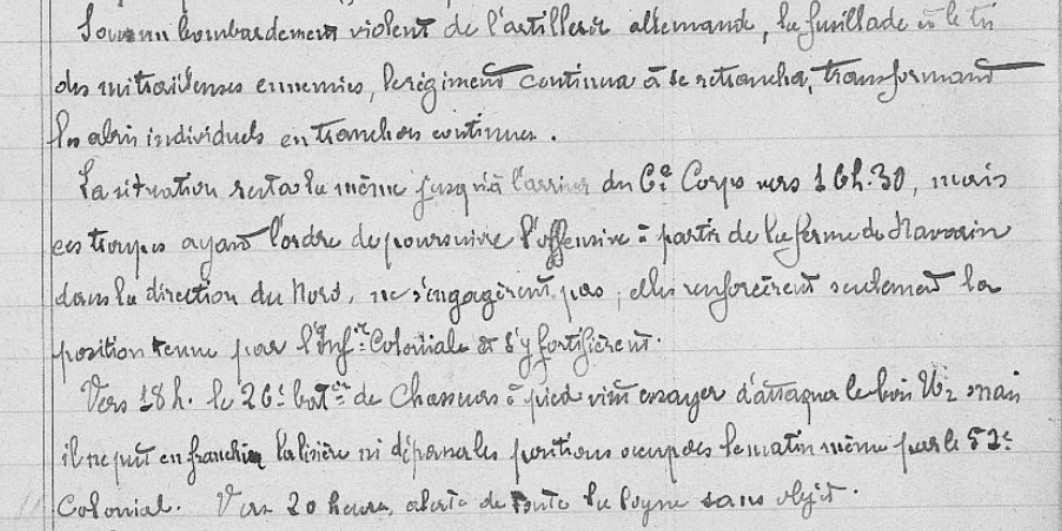 Sous un bombardement violent de l'artillerie allemande, la fusillade et le tir
des mitrailleuses ennemies, le régiment continua à se retrancher, transformant
les abris individuels en tranchées continues.
La situation resta la même jusqu'à l'arrivée du 6e Corps vers 16h.30, mais
ces troupes ayant l'ordre de poursuivre l'offensive à partir de la ferme de Navarin
dans la direction du Nord, ne s'engagèrent pas ; elles renforcèrent seulement la
position tenue par l'Infie Coloniale et s'y fortifièrent.
Vers 18h. le 26e baton de Chasseurs à pied vint essayer d'attaquer le bois U2 mais
il ne put en franchir la lisière ni dépasser les positions occupées le matin même par le 52e
Colonial. Vers 20 heures, alerte de toute la ligne sans objet.